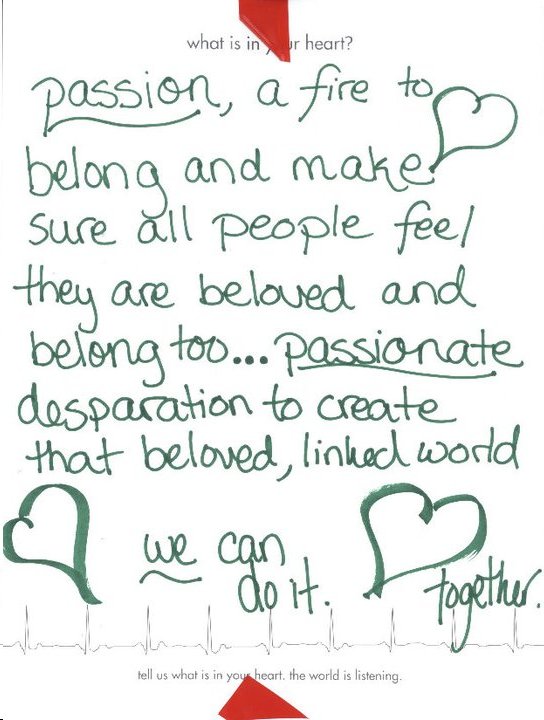 what is in your heart?
passion, a fire to
belong and make
sure all people feel
they are beloved and
belong too... passionate
desparation to create
that beloved, linked world
we can
do it. together.
tell us what is in your heart. the world is listening.